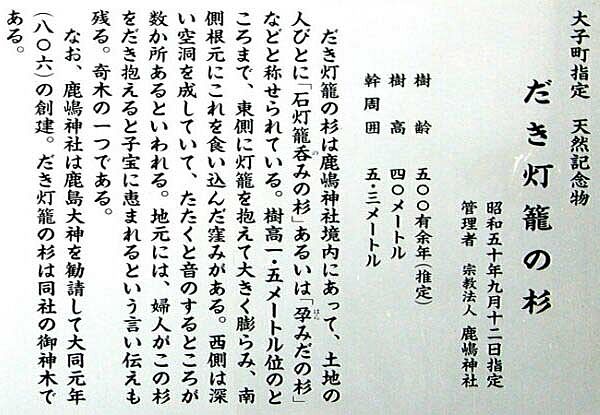 大子町指定　天然記念物
だき灯籠の杉
昭和五十年九月十二日指定
管理者　宗教法人　鹿嶋神社
樹　齢　五〇〇有余年（推定）
樹　高　四〇メートル
幹周囲　五・三メートル
だき灯籠の杉は鹿嶋神社境内にあって、土地の
人びとに「石灯籠呑みの杉」あるいは「孕みだの杉」
などと称せられている。樹高一・五メートル位のと
ころまで、東側に灯籠を抱えて大きく膨らみ、南
側根元にこれを食い込んだ窪みがある。西側は深
い空洞を成していて、たたくと音のするところが
数か所あるといわれる。地元には、婦人がこの杉
をだき抱えると子宝に恵まれるという言い伝えも
残る。奇木の一つである。
なお、鹿嶋神社は鹿島大神を勧請して大同元年
（八〇六）の創建。だき灯籠の杉は同社の御神木で
ある。